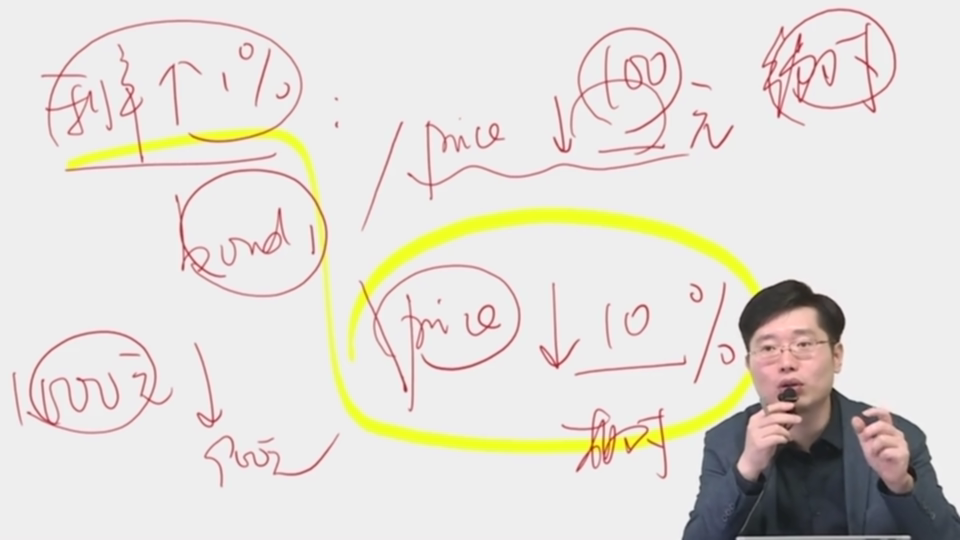 利率↑1%:
price ↓100元 绝对
bond 1
price ↓10%
1000元↓
900元
相对